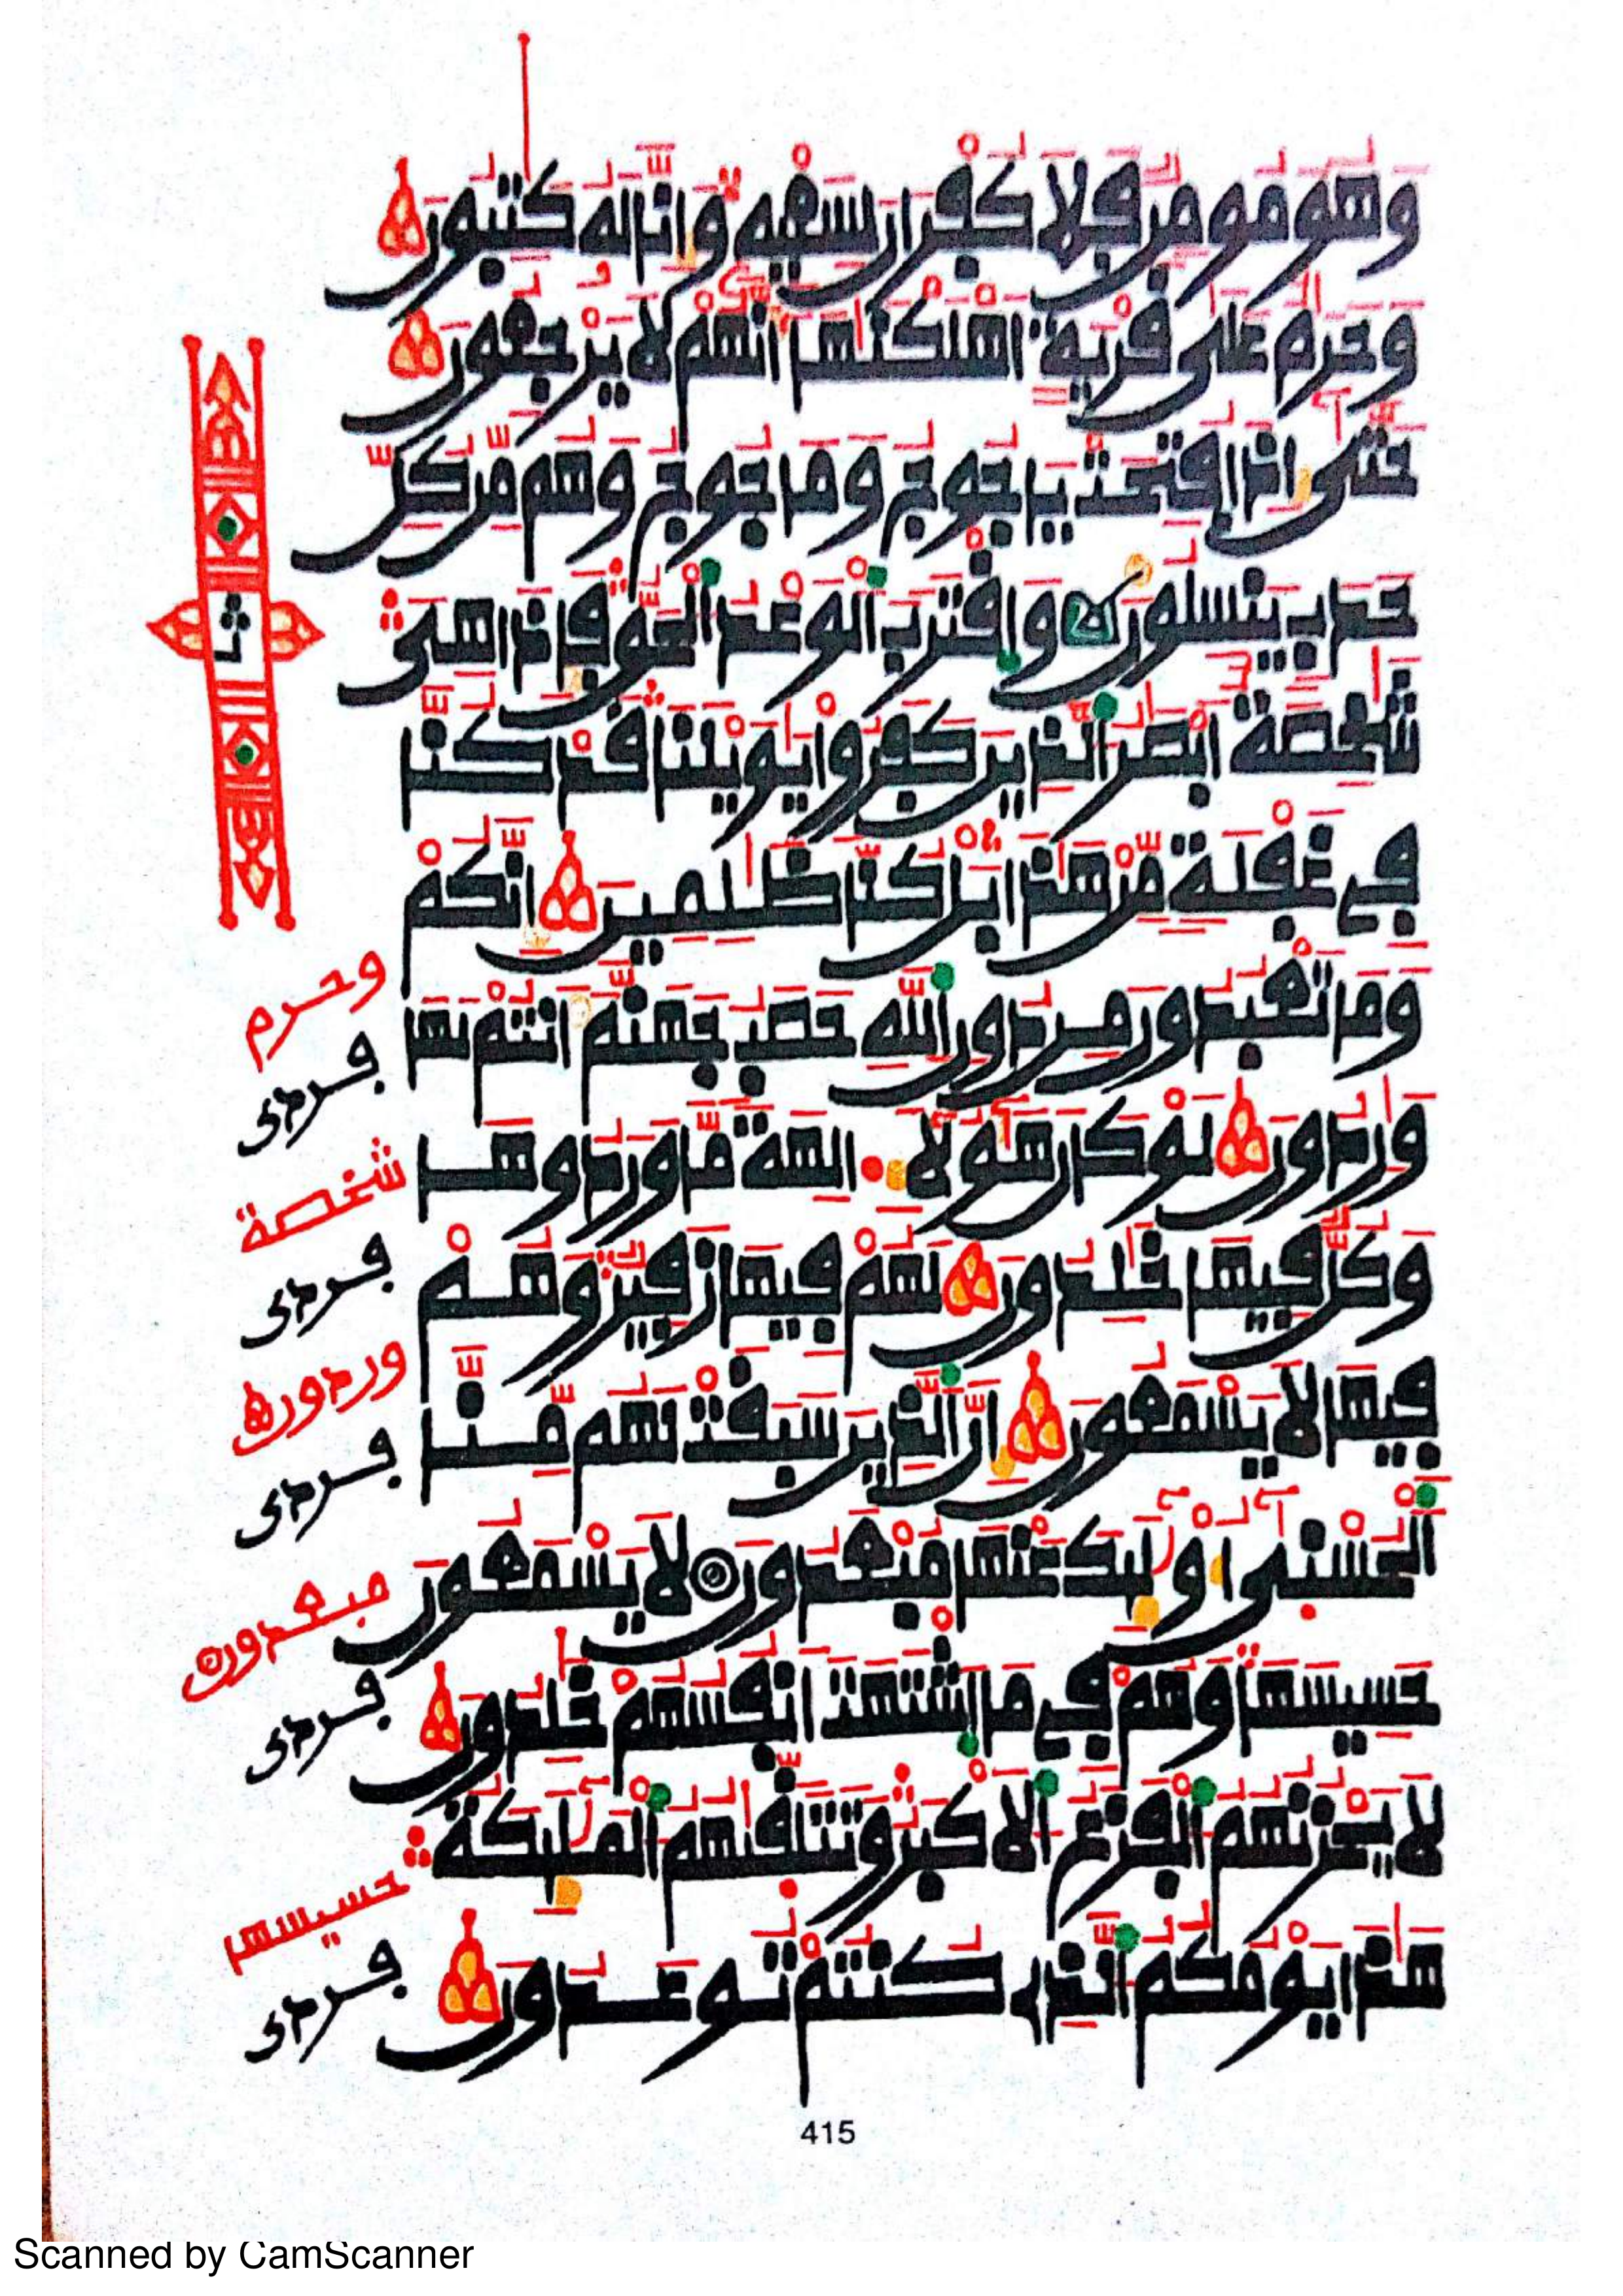 وَهُوَ مُومِنٌ فَلَا كُفْرَانَ لِسَعْيِهِۦ وَإِنَّا لَهُۥ كَٰتِبُونَ
وَحَرَٰمٌ عَلَىٰ قَرْيَةٍ اَهْلَكْنَٰهَآ أَنَّهُمْ لَا يَرْجِعُونَ
حَتَّىٰٓ إِذَا فُتِحَتْ يَاجُوجُ وَمَاجُوجُ وَهُم مِّن كُلِّ
حَدَبٍ يَنسِلُونَ وَاقْتَرَبَ اَلْوَعْدُ اُلْحَقُّ فَإِذَا هِيَ
شَٰخِصَةٌ اَبْصَٰرُ اُلذِينَ كَفَرُوا يَٰوَيْلَنَا قَدْ كُنَّا
فِي غَفْلَةٍ مِّنْ هَٰذَا بَلْ كُنَّا ظَٰلِمِينَ إِنَّكُمْ
وَمَا تَعْبُدُونَ مِن دُونِ اِللَّهِ حَصَبُ جَهَنَّمَ أَنتُمْ لَهَا
وَٰرِدُونَ لَوْ كَانَ هَٰٓؤُلَآءِ الِهَةً مَّا وَرَدُوهَا
وَكُلٌّ فِيهَا خَٰلِدُونَ لَهُمْ فِيهَا زَفِيرٌ وَهُمْ
فِيهَا لَا يَسْمَعُونَ إِنَّ اَلذِينَ سَبَقَتْ لَهُم مِّنَّا
اَلْحُسْنَىٰٓ أُوْلَٰٓئِكَ عَنْهَا مُبْعَدُونَ لَا يَسْمَعُونَ
حَسِيسَهَا وَهُمْ فِي مَا اَشْتَهَتَ اَنفُسُهُمْ خَٰلِدُونَ
لَا يُحْزِنُهُمُ اُلْفَزَعُ اُلَاكْبَرُ وَتَتَلَقَّىٰهُمُ اُلْمَلَٰٓئِكَةُ
هَٰذَا يَوْمُكُمُ اُلذِي كُنتُمْ تُوعَدُونَ
وحرم
فردى
شخصة
فردى
وردون
فردى
مبعدون
فردى
حسيسها
فردى
415
Scanned by CamScanner